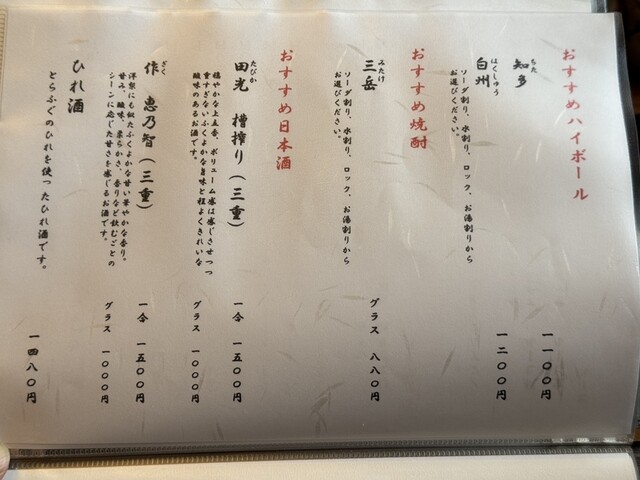 おすすめハイボール
知多
ちた
一一〇〇円
白州
はくしゅう
一二〇〇円
ソーダ割り、水割り、ロック、お湯割りから
お選びください。
おすすめ焼酎
三岳
みたけ
グラス 八八〇円
ソーダ割り、水割り、ロック、お湯割りから
お選びください。
おすすめ日本酒
田光 槽搾り（三重）
たびか
一合 一五〇〇円
穏やかな上立香。ボリューム感は感じさせつつ
重すぎないふくよかな旨味と程よくきれいな
酸味のあるお酒です。
グラス 一〇〇〇円
作 恵乃智（三重）
ざく
一合 一五〇〇円
洋梨にも似たふくよかな甘い華やかな香り。
甘み、酸味、柔らかさ、香りなど飲むごとの
シーンに応じた甘さを感じるお酒です。
グラス 一〇〇〇円
ひれ酒
とらふぐのひれを使ったひれ酒です。
一四八〇円